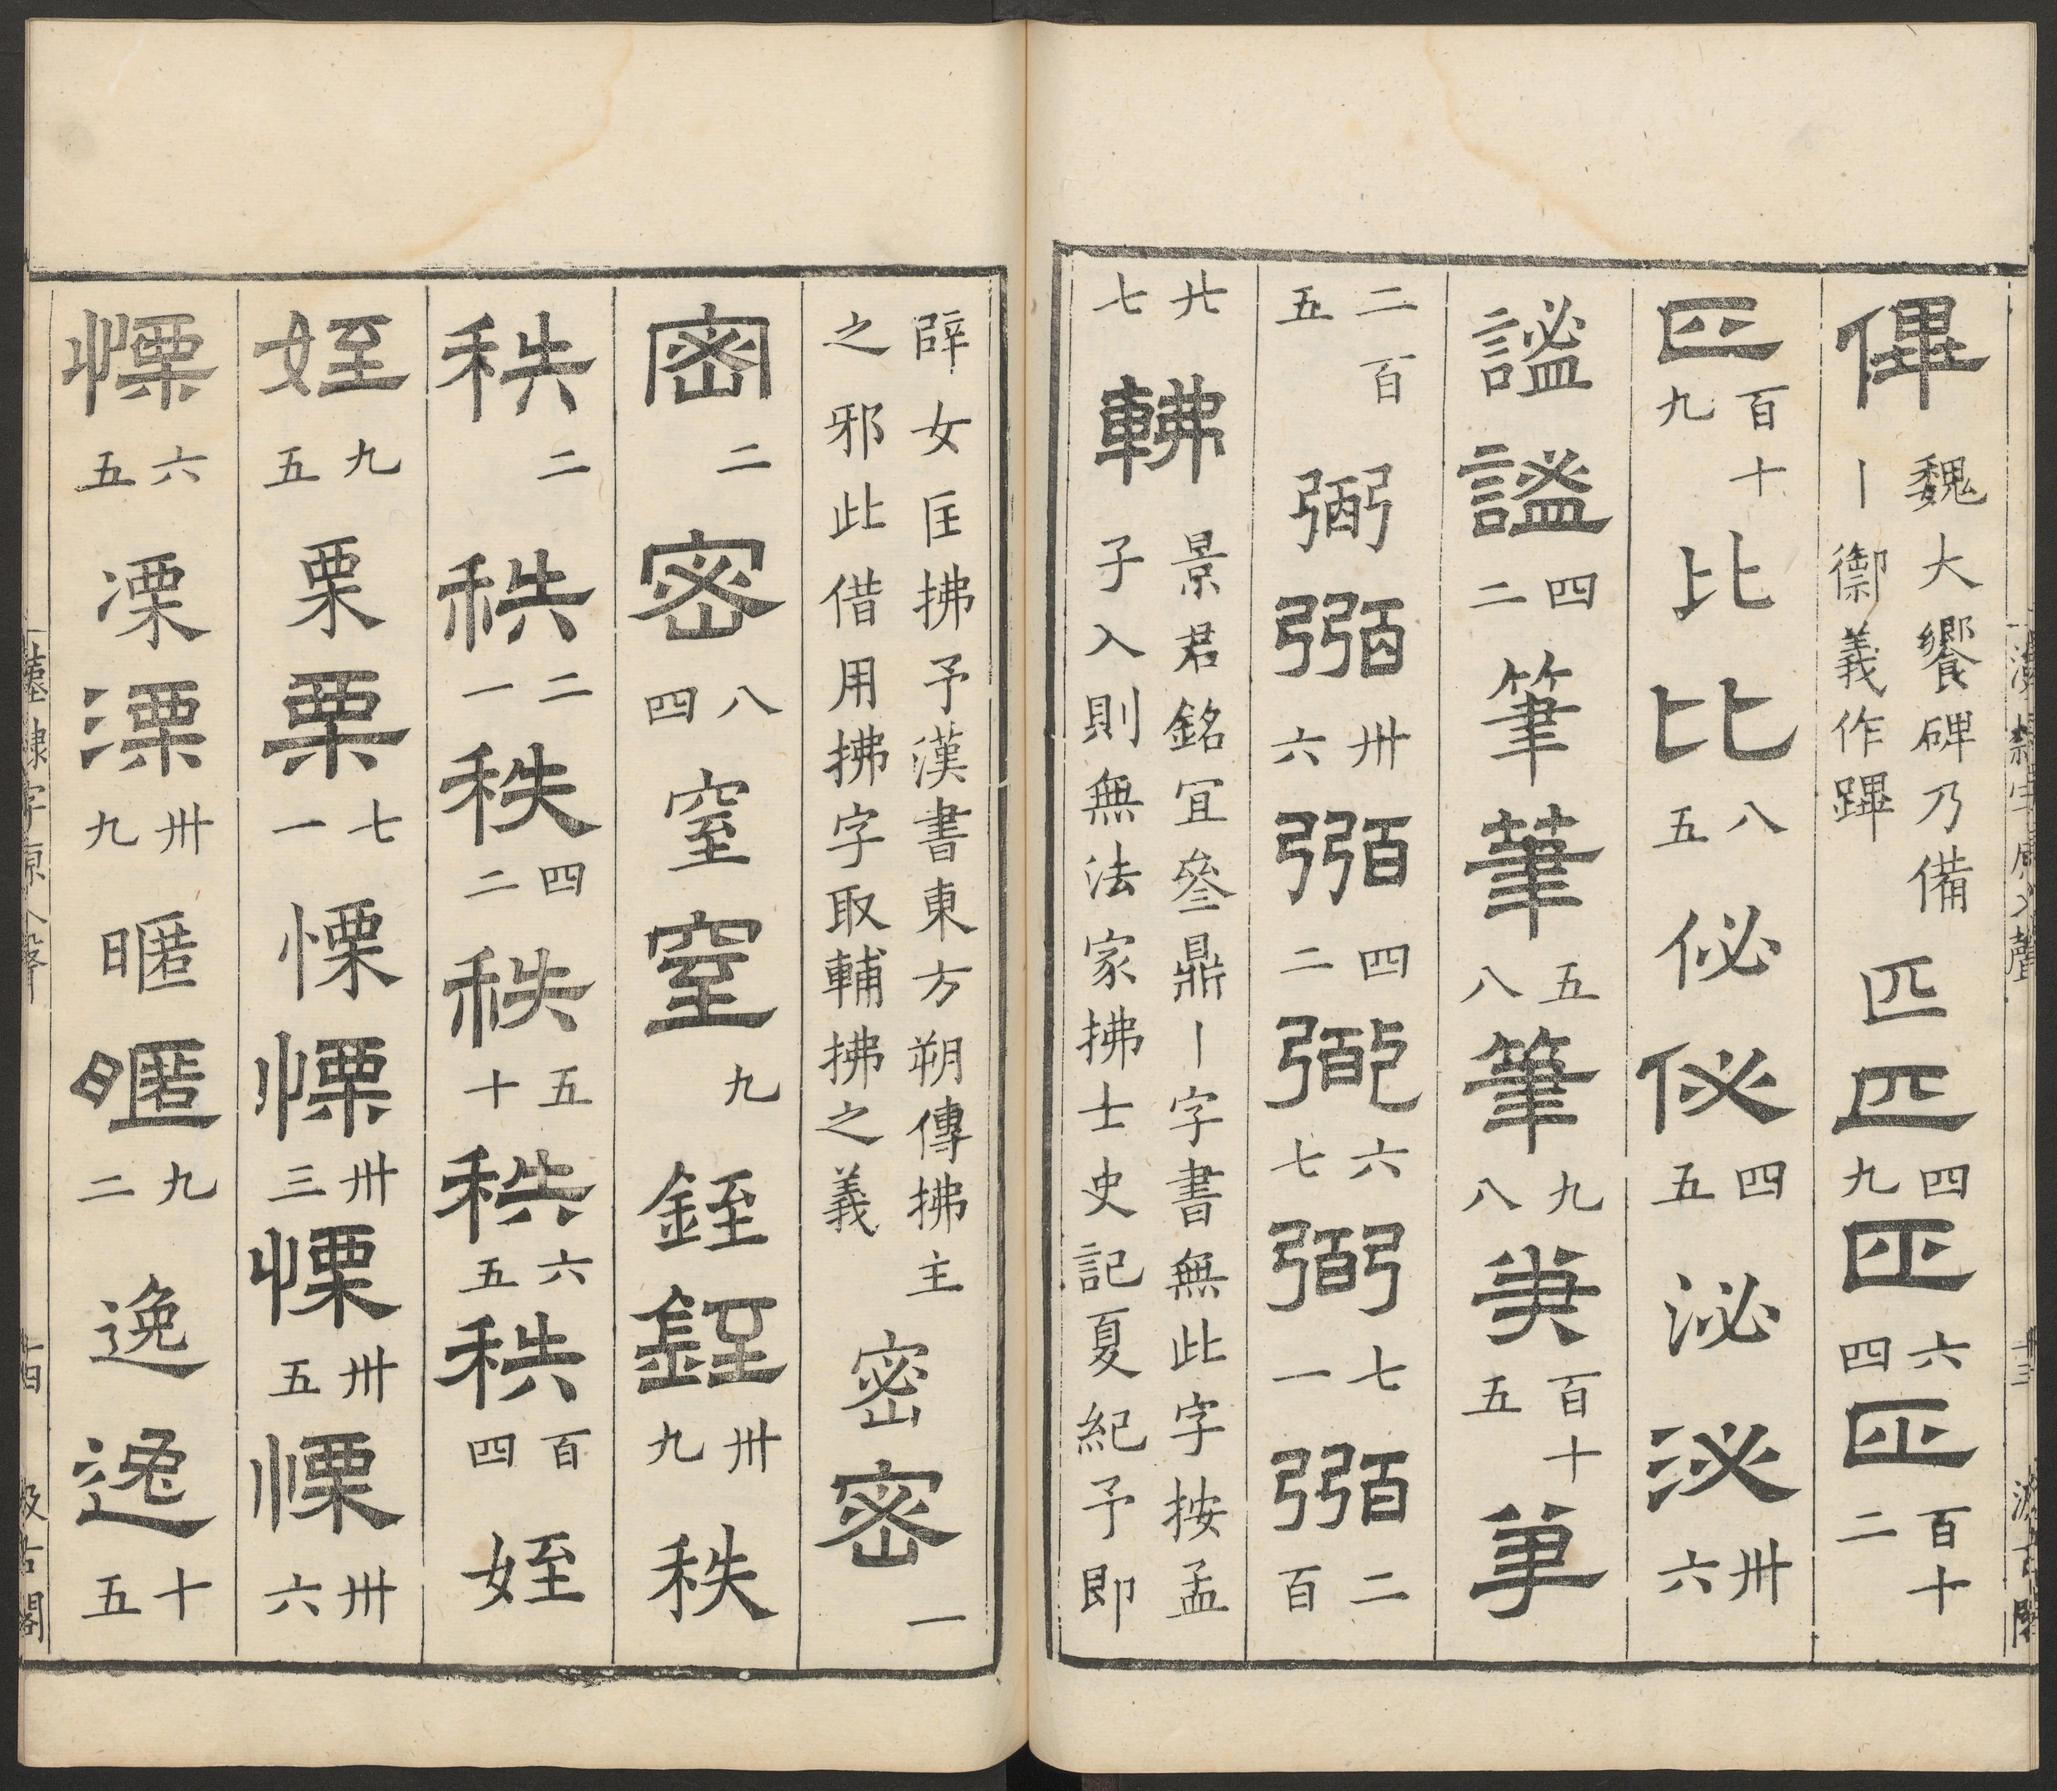 魏大饗碑乃備
丨御義作蹕
匹匹四九匹六四匹百十二
匹百十九比比八五佖佖四五泌泌卅六
謐謐四二筆筆五八筆九八筆百十五筆
二百五弼弼卅六弼四二弼六七弼七一弼二百
廿七
景君銘冝叅鼎丨字書無此字按孟
子入則無法家拂士史記夏紀予即
辟女匡拂予漢書東方朔傳拂主
之邪此借用拂字取輔拂之義
密密一
密二密八四窒窒九銍銍卅九秩
秩二秩二一秩四二秩五十秩六五秩百四姪
姪九五栗栗七一慄慄卅三慄卅五慄卅六
慄六五凓凓卅九暱暱九二逸逸十五
汲古閣